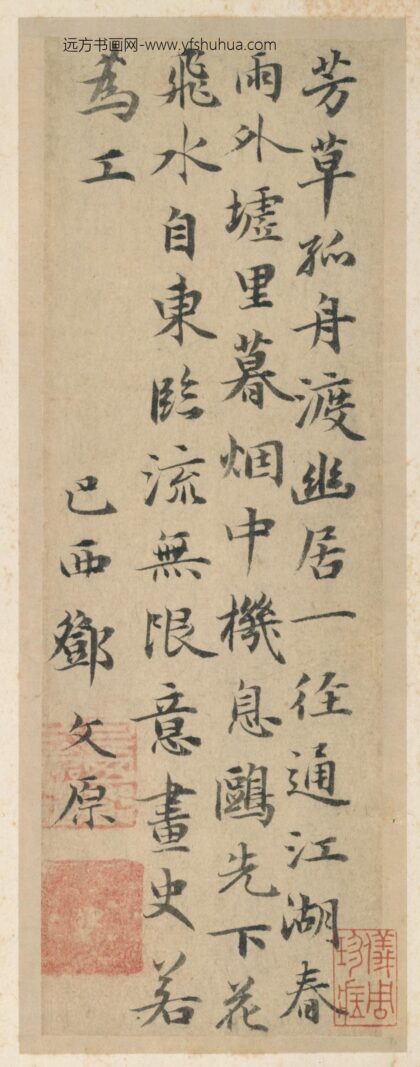 远方书画网-www.yfshuhua.com
芳草孤舟渡幽居一径通江湖春
雨外墟里暮烟中機息鷗先下花
飛水自東臨流無限意畫史若
為工
巴西鄧文原
儀周珍藏